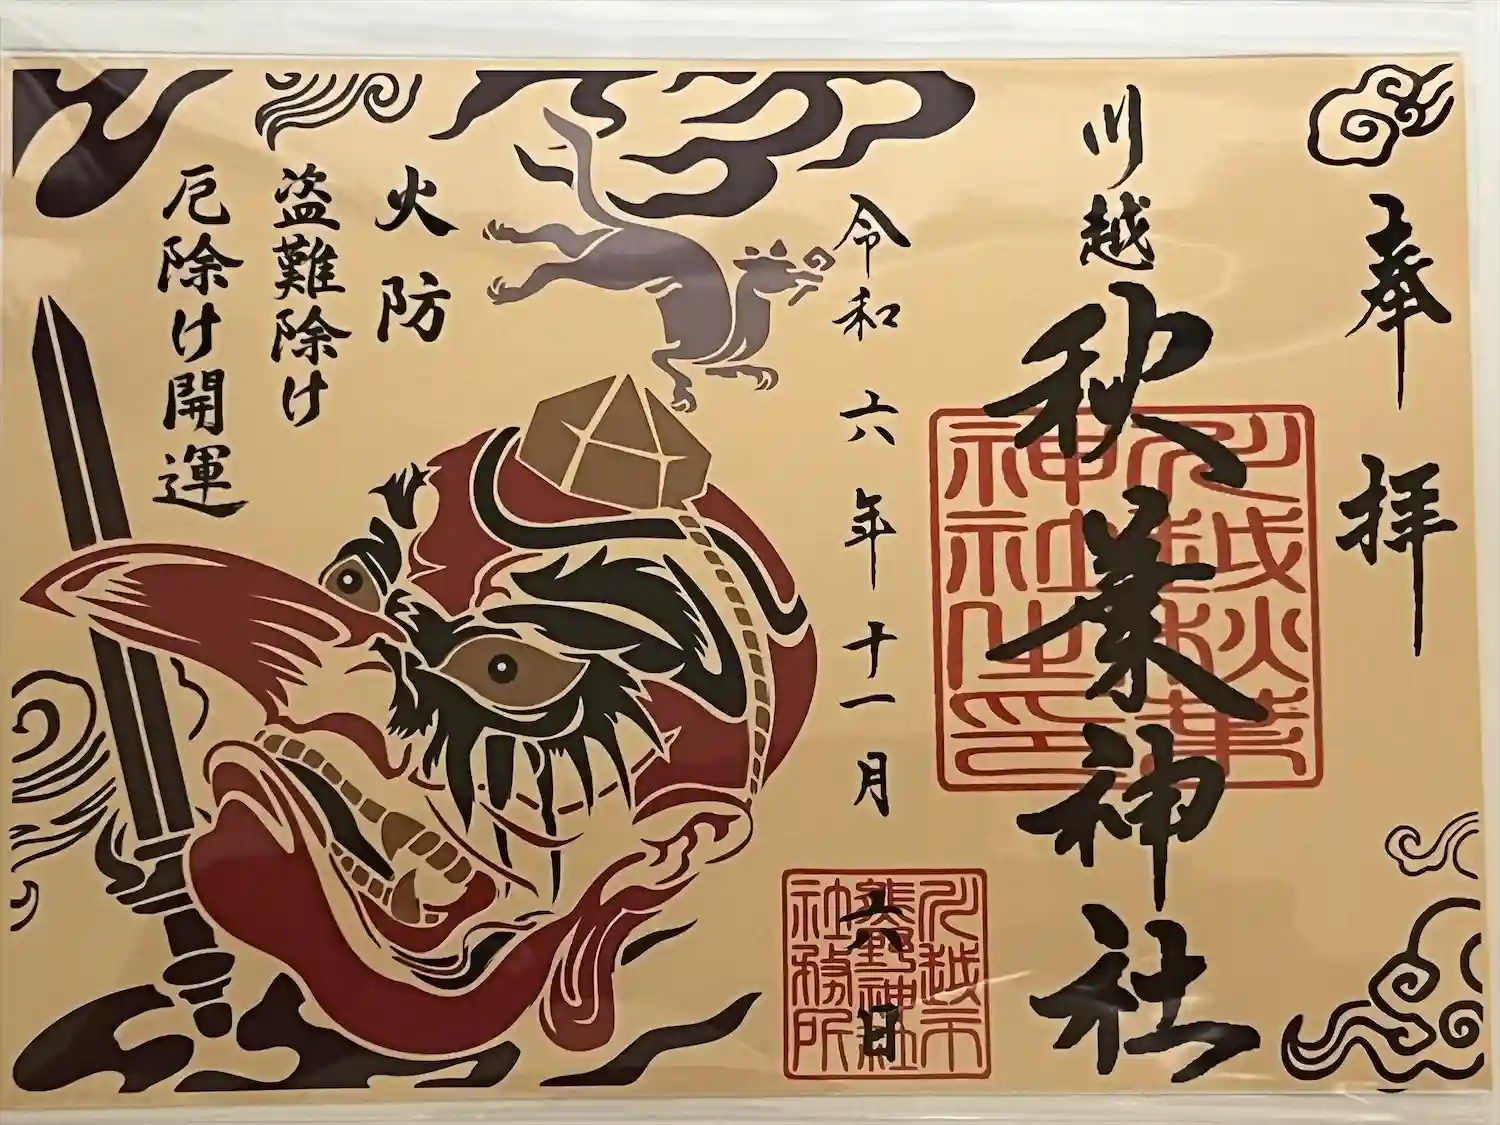 奉拝
川越
秋葉神社
川越秋葉神社之印
令和六年十一月六日
川越市熊野神社社務所
火防
盗難除け
厄除け開運